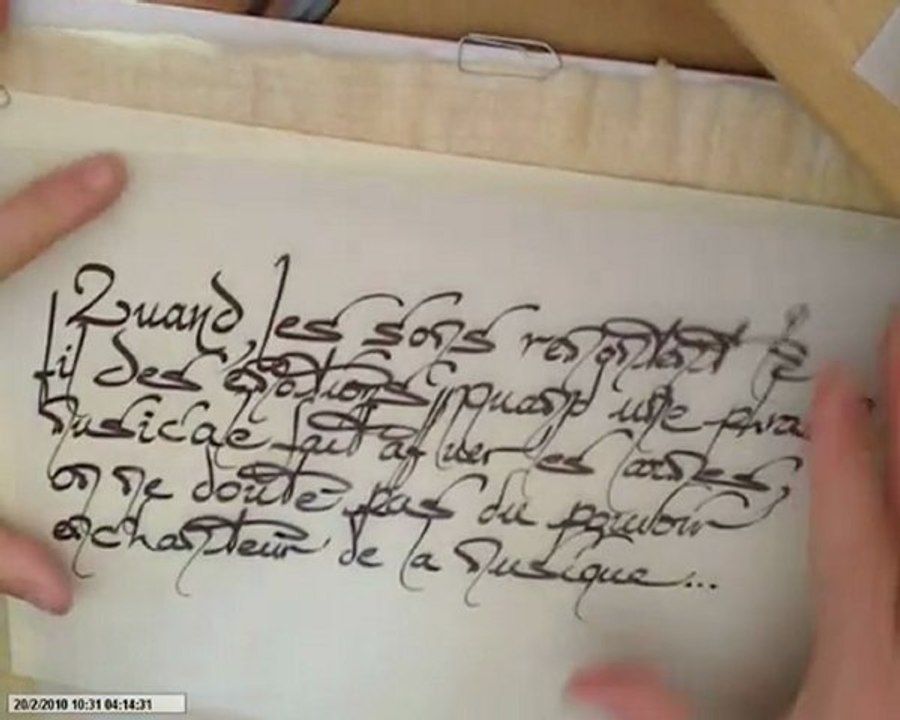 Quand les sons remontent le
fil des émotions, quand une phra
musicale fait affluer les larmes,
on ne doute pas du pouvoir
enchanteur de la musique...
20/2/2010 10:31 04:14:31